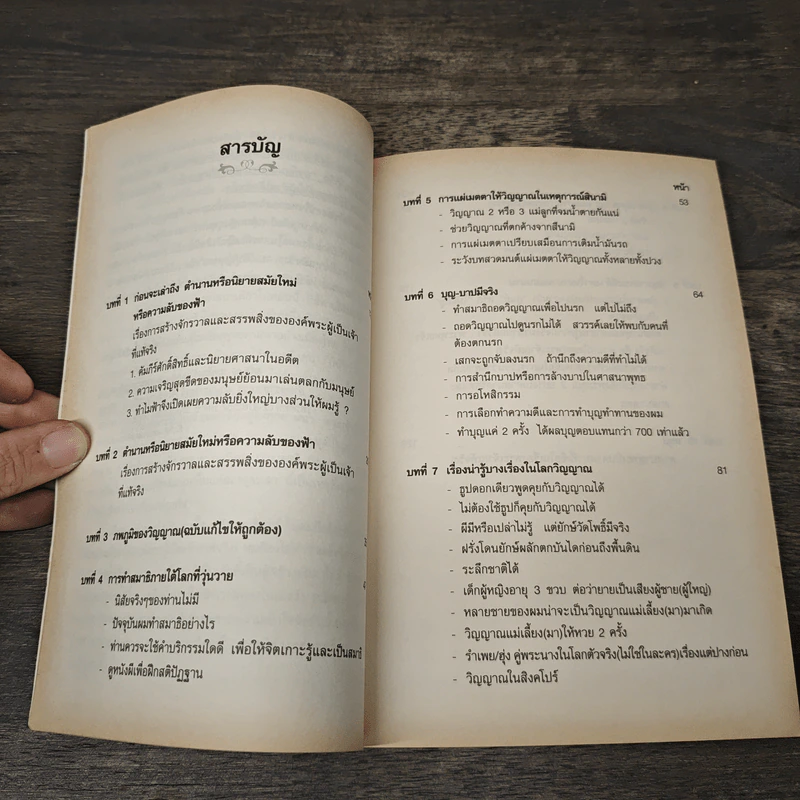 สารบัญ
บทที่ 1 ก่อนจะเล่าถึง ตำนานหรือนิยายสมัยใหม่
หรือความลับของฟ้า
เรื่องการสร้างจักรวาลและสรรพสิ่งขององค์พระผู้เป็นเจ้า
ที่แท้จริง
1. คัมภีร์ศักดิ์สิทธิ์และนิยายศาสนาในอดีต
2. ความเจริญสุดขีดของมนุษย์ย้อนมาเล่นตลกกับมนุษย์
3. ทำไมฟ้าจึงเปิดเผยความลับยิ่งใหญ่บางส่วนให้ผมรู้ ?
บทที่ 2 ตำนานหรือนิยายสมัยใหม่หรือความลับของฟ้า
เรื่องการสร้างจักรวาลและสรรพสิ่งขององค์พระผู้เป็นเจ้า
ที่แท้จริง
บทที่ 3 ภพภูมิของวิญญาณ(ฉบับแก้ไขให้ถูกต้อง)
บทที่ 4 การทำสมาธิภายใต้โลกที่วุ่นวาย
- นิสัยจริงๆของท่านไม่มี
- ปัจจุบันผมทำสมาธิอย่างไร
- ท่านควรจะใช้คำบริกรรมใดดี เพื่อให้จิตเกาะรู้และเป็นสมาธิ
- ดูหนังผีเพื่อฝึกสติปัฏฐาน
หน้า
บทที่ 5 การแผ่เมตตาให้วิญญาณในเหตุการณ์สึนามิ 53
- วิญญาณ 2 หรือ 3 แม่ลูกที่จมน้ำตายกันแน่
- ช่วยวิญญาณที่ตกค้างจากสึนามิ
- การแผ่เมตตาเปรียบเสมือนการเติมน้ำมันรถ
- ระวังบทสวดมนต์แผ่เมตตาให้วิญญาณทั้งหลายทั้งปวง
บทที่ 6 บุญ-บาปมีจริง 64
- ทำสมาธิถอดวิญญาณเพื่อไปนรก แต่ไปไม่ถึง
- ถอดวิญญาณไปดูนรกไม่ได้ สวรรค์เลยให้พบกับคนที่
ต้องตกนรก
- เสกจะถูกจับลงนรก ถ้านึกถึงความดีที่ทำไม่ได้
- การสำนึกบาปหรือการล้างบาปในศาสนาพุทธ
- การอโหสิกรรม
- การเลือกทำความดีและการทำบุญทำทานของผม
- ทำบุญแค่ 2 ครั้ง ได้ผลบุญตอบแทนกว่า 700 เท่าแล้ว
บทที่ 7 เรื่องน่ารู้บางเรื่องในโลกวิญญาณ 81
- ธูปดอกเดียวพูดคุยกับวิญญาณได้
- ไม่ต้องใช้ธูปก็คุยกับวิญญาณได้
- ผีมีหรือเปล่าไม่รู้ แต่ยักษ์วัดโพธิ์มีจริง
- ฝรั่งโดนยักษ์ผลักตกบันไดก่อนถึงพื้นดิน
- ระลึกชาติได้
- เด็กผู้หญิงอายุ 3 ขวบ ต่อว่ายายเป็นเสียงผู้ชาย(ผู้ใหญ่)
- หลายชายของผมน่าจะเป็นวิญญาณแม่เลี้ยง(มา)มาเกิด
- วิญญาณแม่เลี้ยง(มา)ให้หวย 2 ครั้ง
- รำเพย/ฮุ่ง คู่พระนางในโลกตัวจริง(ไม่ใช่ในละคร)เรื่องแต่ปางก่อน
- วิญญาณในสิงคโปร์